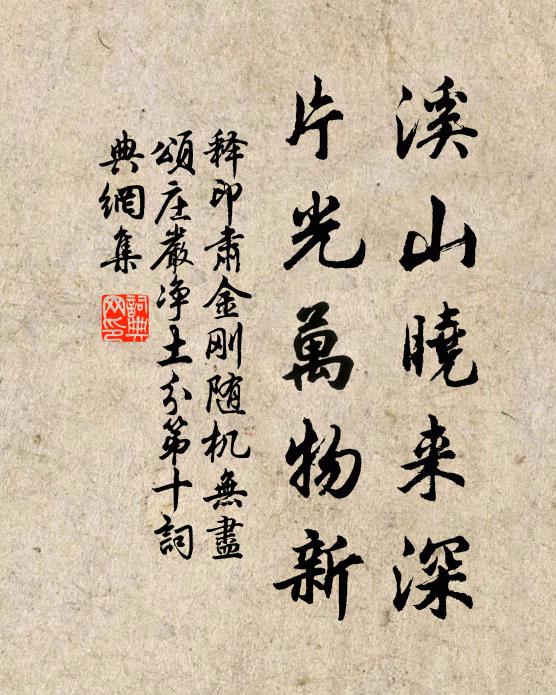 溪山曉来深
片光萬物新
释印肃金刚随机無盡
頌庄嚴净土分第十詞
典網集
詞典
网印